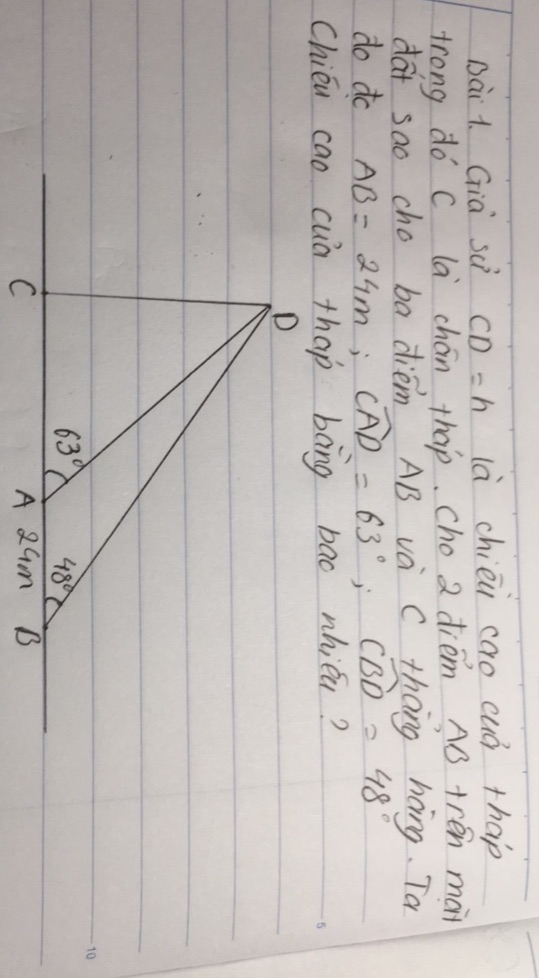 Bài 1. Giả sử CD = h là chiều cao của tháp
trong đó C là chân tháp. Cho 2 điểm AB trên mặt
đất sao cho ba điểm AB và C thẳng hàng. Ta
đo đc AB = 24m; CAD = 63°; CBD = 48°
Chiều cao của tháp bằng bao nhiêu?
D
C 63° A 24m 48° B
5
10